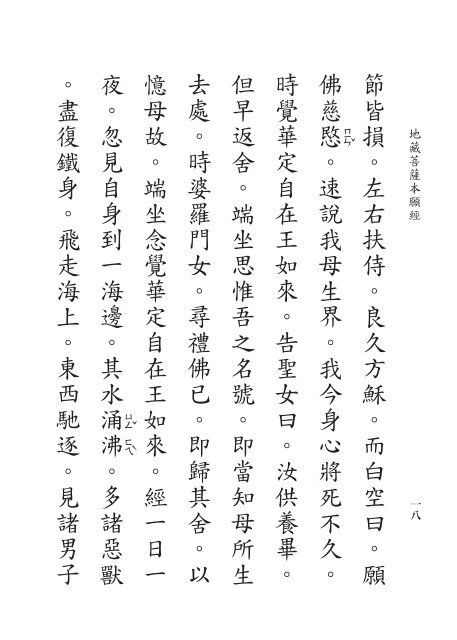 地藏菩薩本願經
一八
節皆損。左右扶侍。良久方穌。而白空曰。願
佛慈愍ㄇㄧㄣˇ。速說我母生界。我今身心將死不久。
時覺華定自在王如來。告聖女曰。汝供養畢。
但早返舍。端坐思惟吾之名號。即當知母所生
去處。時婆羅門女。尋禮佛已。即歸其舍。以
憶母故。端坐念覺華定自在王如來。經一日一
夜。忽見自身到一海邊。其水涌ㄩㄥˇ沸ㄈㄟˋ。多諸惡獸
。盡復鐵身。飛走海上。東西馳逐。見諸男子